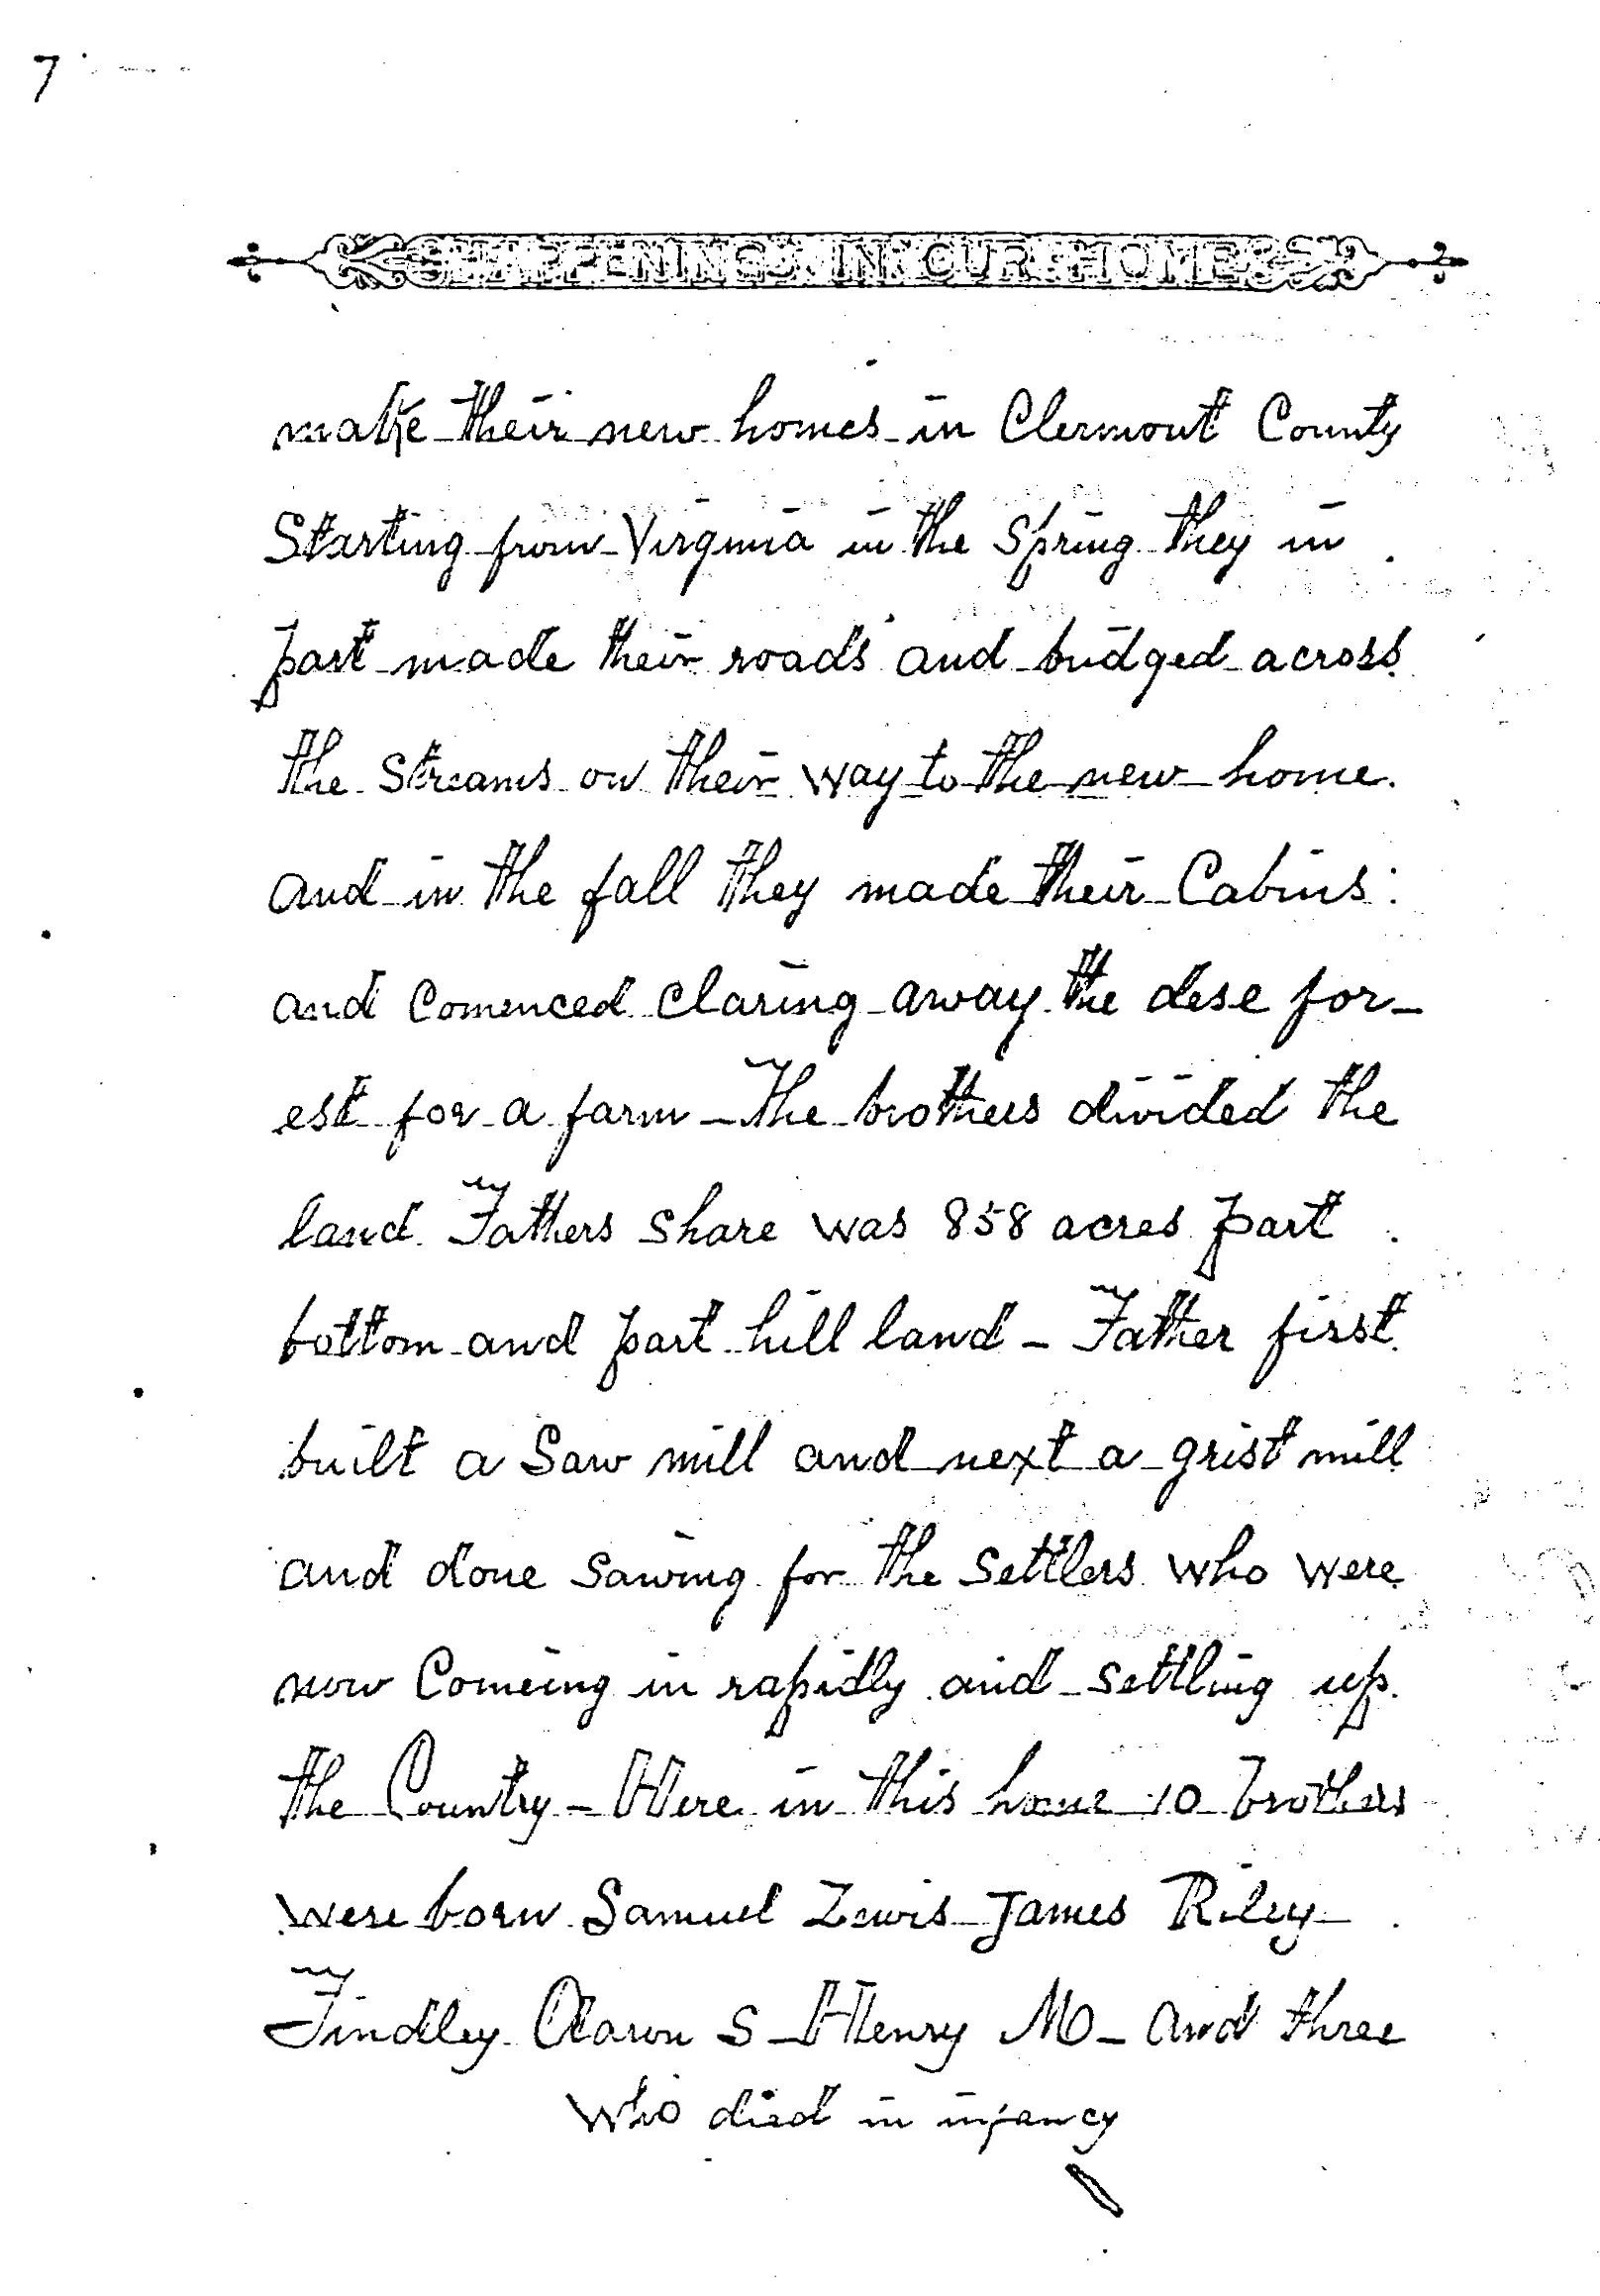 7
HAPPENINGS IN OUR HOME
make their new homes in Clermont County
Starting from Virginia in the Spring they in
part made their roads and bridged across
the streams on their way to the new home.
and in the fall they made their Cabins
and Comenced claring away the dese for-
est for a farm - The brothers divided the
land. Fathers share was 858 acres part
bottom and part hill land - Father first
built a Saw mill and next a grist mill
and done sawing for the settlers who were
now Comeing in rapidly and settling up
the Country - Here in this home 10 brothers
were born Samuel Lewis James Riley
Findley Aaron S - Henry M - and three
who died in infancy